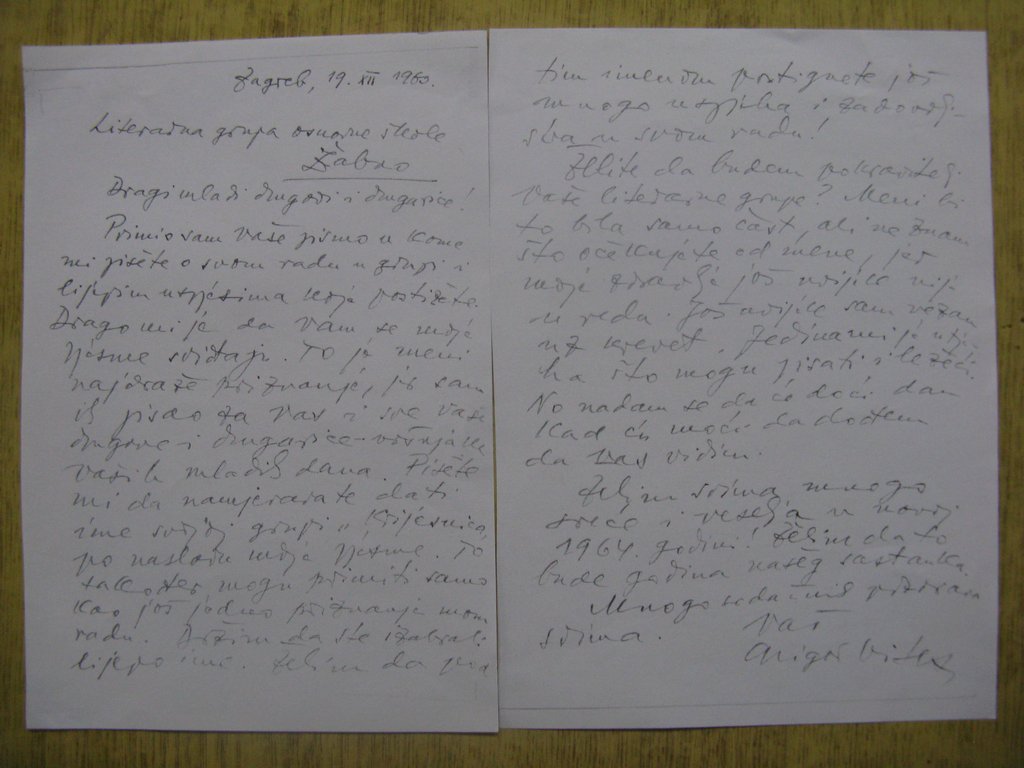 Zagreb, 19. XII 1963.
Literarna grupa osnovne škole
Žabno
Dragi mladi drugovi i drugarice!
Primio sam vaše pismo u kome
mi pišete o svom radu u grupi i
lijepim uspjesima koje postižete.
Drago mi je da vam se moje
pjesme sviđaju. To je meni
najdraže priznanje, jer sam
ih pisao za vas i sve vaše
drugove i drugarice-vršnjake
vaših mladih dana. Pišete
mi da namjeravate dati
ime svojoj grupi "Krijesnica"
po naslovu moje pjesme. To
također mogu primiti samo
kao još jedno priznanje mom
radu. Držim da ste izabrali
lijepo ime. Želim da pod
tim imenom postignete još
mnogo uspjeha i zadovolj-
stva u svom radu!
Želite da budem pokrovitelj
vaše literarne grupe? Meni bi
to bila samo čast, ali ne znam
što očekujete od mene, jer
moje zdravlje još uvijek nije
u redu. Još uvijek sam vezan
uz krevet. Jedina mi je utje-
ha što mogu pisati i ležeći.
No nadam se da će doći dan
kad ću moći da dođem
da vas vidim.
Želim svima mnogo
sreće i veselja u novoj
1964. godini! Želim da to
bude godina našeg sastanka.
Mnogo srdačnih pozdrava
svima.
Vaš
Grigor Vitez